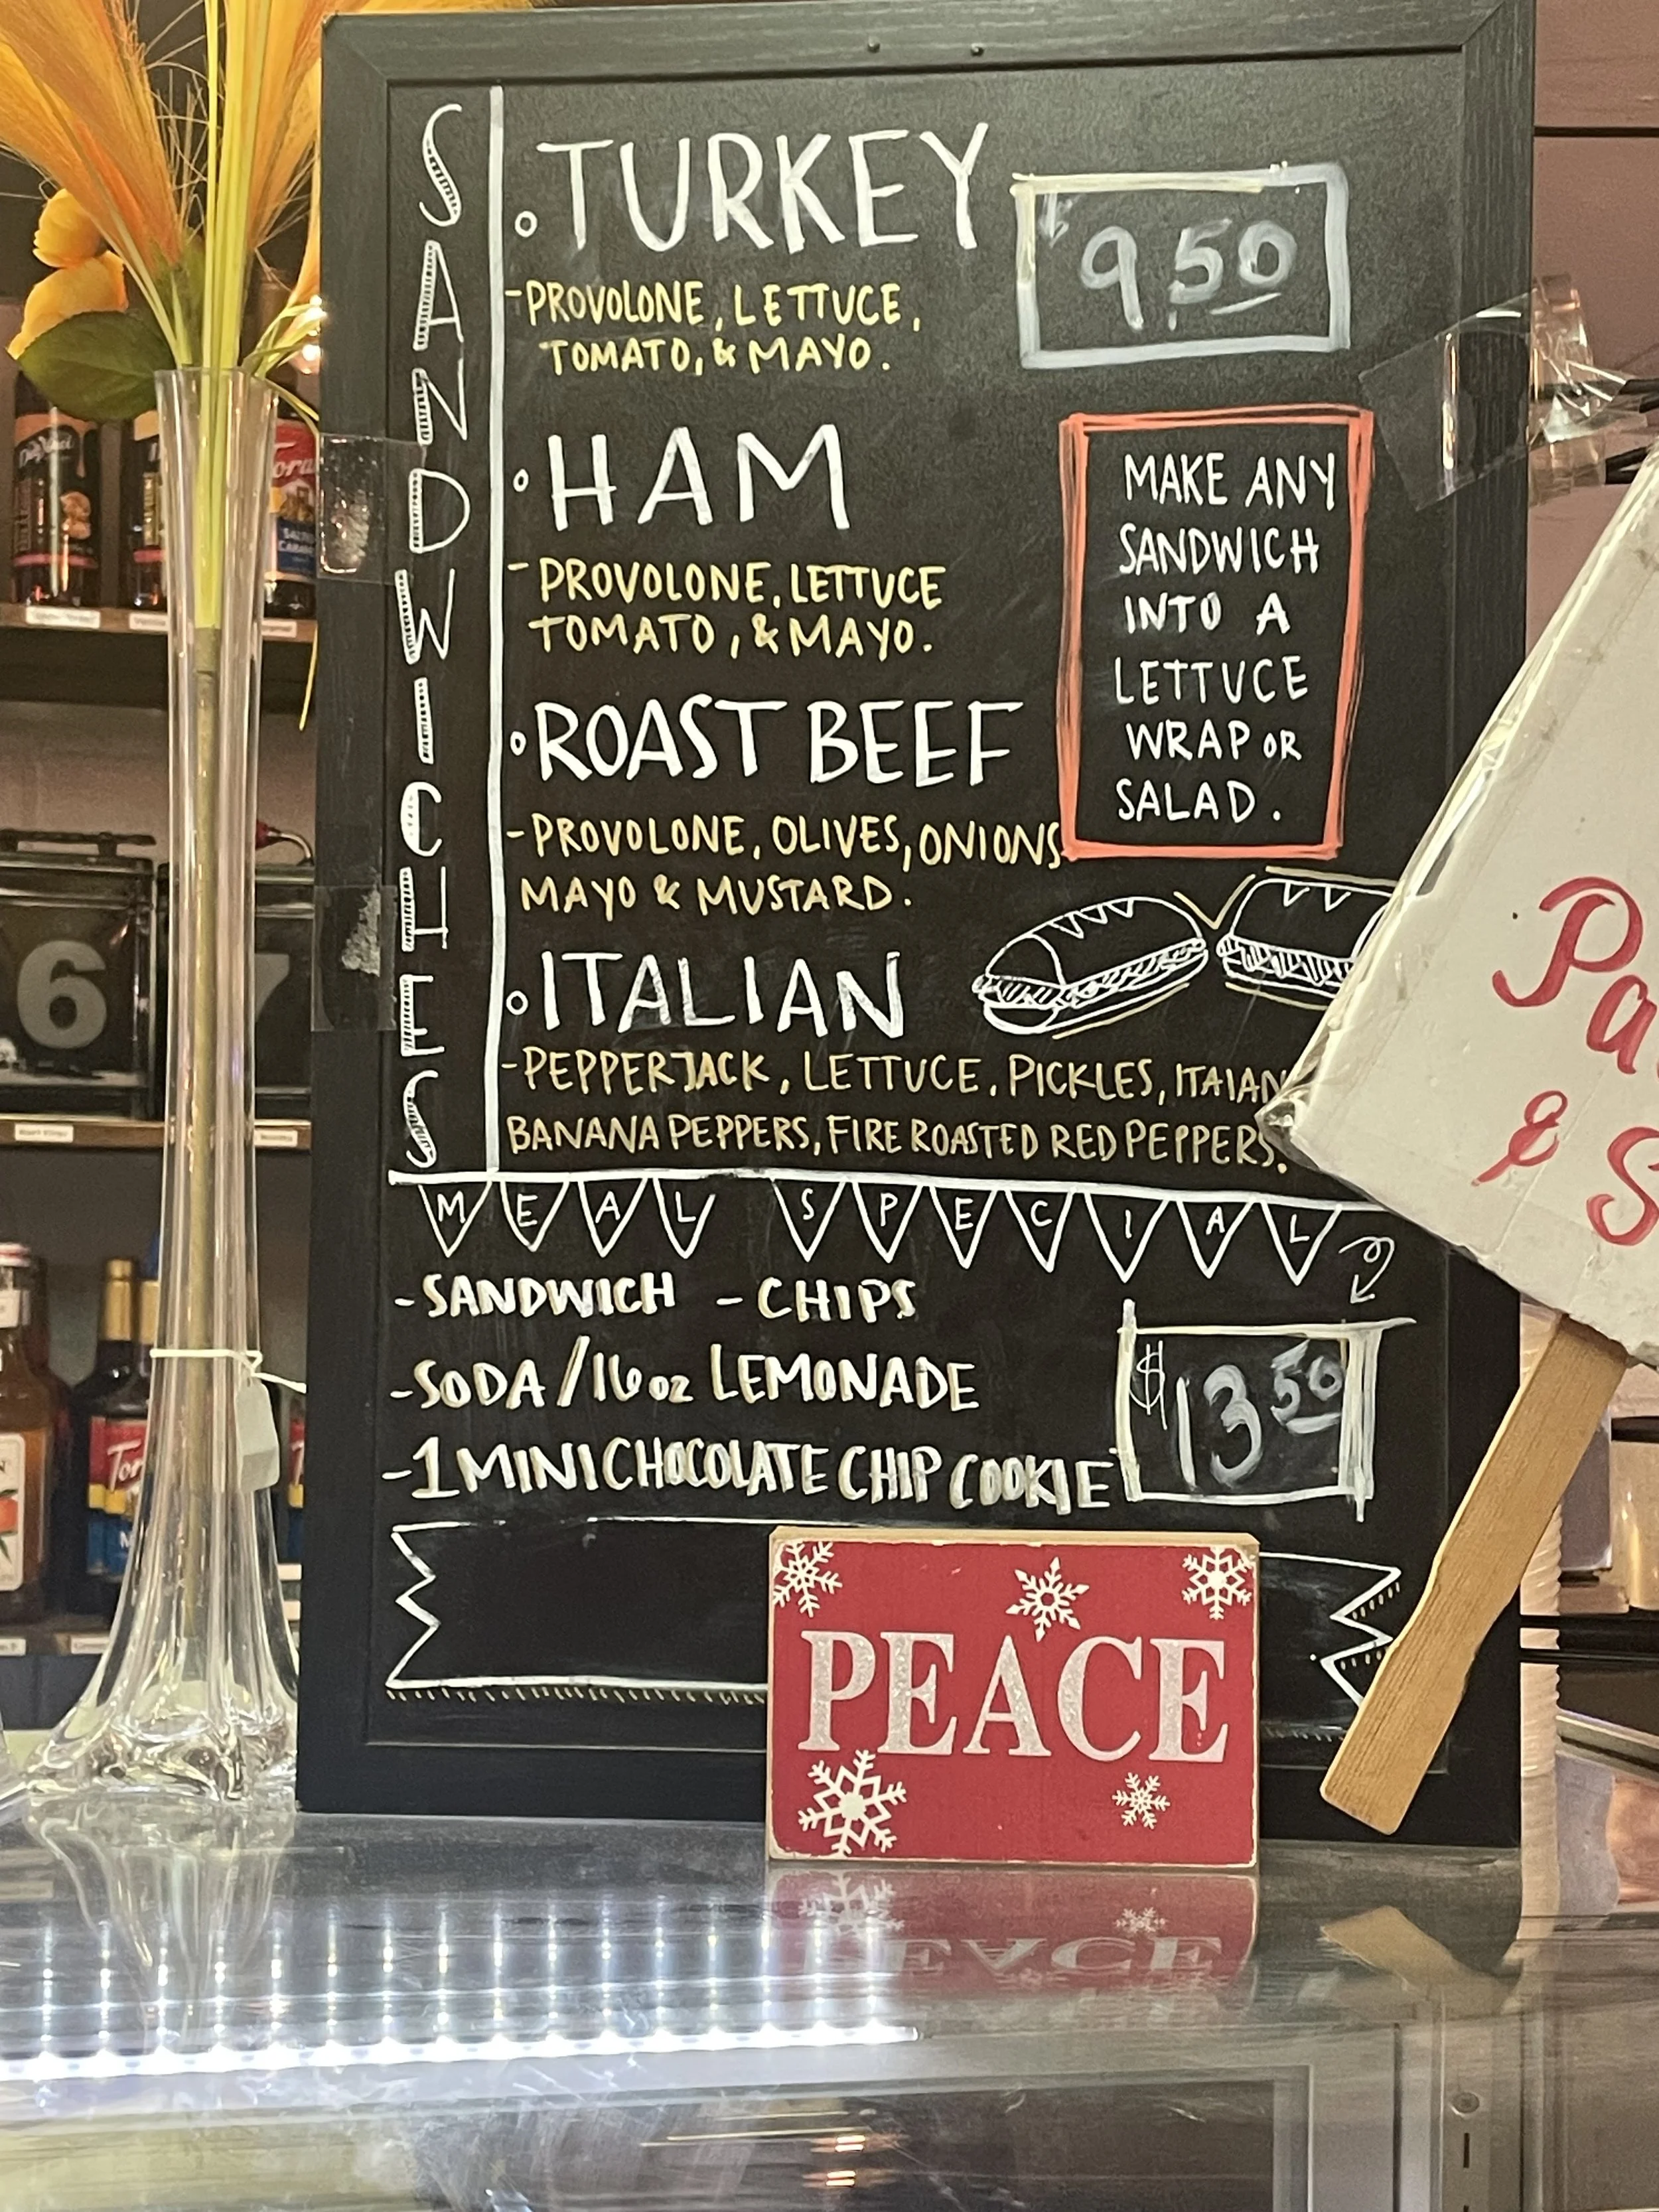 SANDWICHES
TURKEY
$9.50
-PROVOLONE, LETTUCE,
TOMATO, & MAYO.
HAM
-PROVOLONE, LETTUCE
TOMATO, & MAYO.
MAKE ANY
SANDWICH
INTO A
LETTUCE
WRAP OR
SALAD.
ROAST BEEF
-PROVOLONE, OLIVES, ONIONS
MAYO & MUSTARD.
ITALIAN
-PEPPERJACK, LETTUCE, PICKLES, ITAIAN
BANANA PEPPERS, FIRE ROASTED RED PEPPERS.
MEAL SPECIAL
-SANDWICH -CHIPS
-SODA/16oz LEMONADE
-1 MINI CHOCOLATE CHIP COOKIE
$13.50
PEACE
Pa
& S
6
7
DaVinci